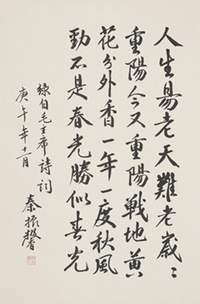 人生易老天難老歲〻
重陽今又重陽戰地黃
花分外香一年一度秋風
勁不是春光勝似春光
錄自毛主席詩詞
庚午年十一月
秦振